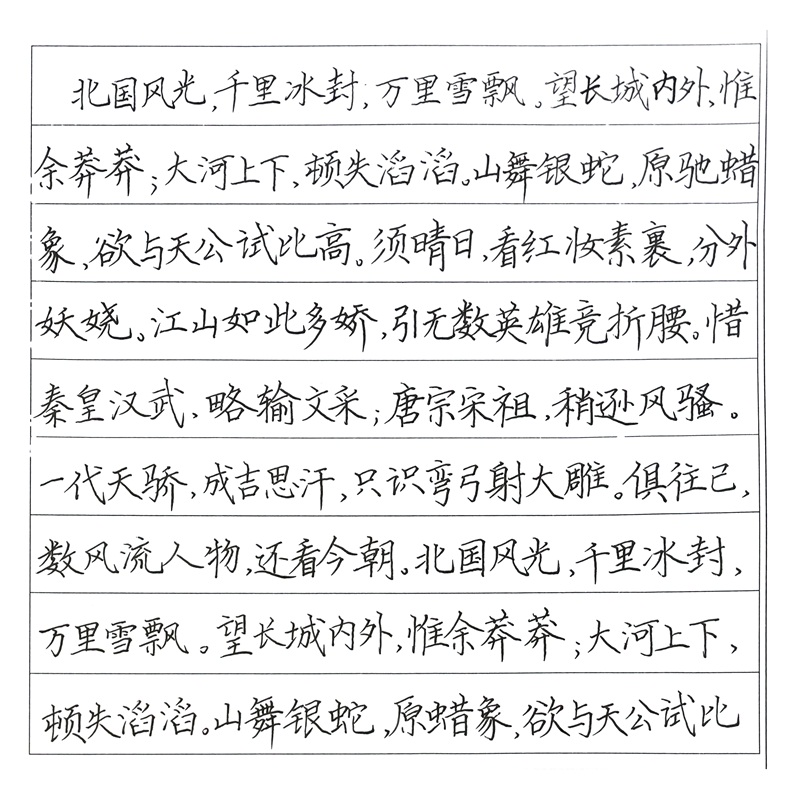 北国风光,千里冰封,万里雪飘。望长城内外,惟
余莽莽;大河上下,顿失滔滔。山舞银蛇,原驰蜡
象,欲与天公试比高。须晴日,看红妆素裹,分外
妖娆。江山如此多娇,引无数英雄竞折腰。惜
秦皇汉武,略输文采;唐宗宋祖,稍逊风骚。
一代天骄,成吉思汗,只识弯弓射大雕。俱往已,
数风流人物,还看今朝。北国风光,千里冰封,
万里雪飘。望长城内外,惟余莽莽;大河上下,
顿失滔滔。山舞银蛇,原蜡象,欲与天公试比